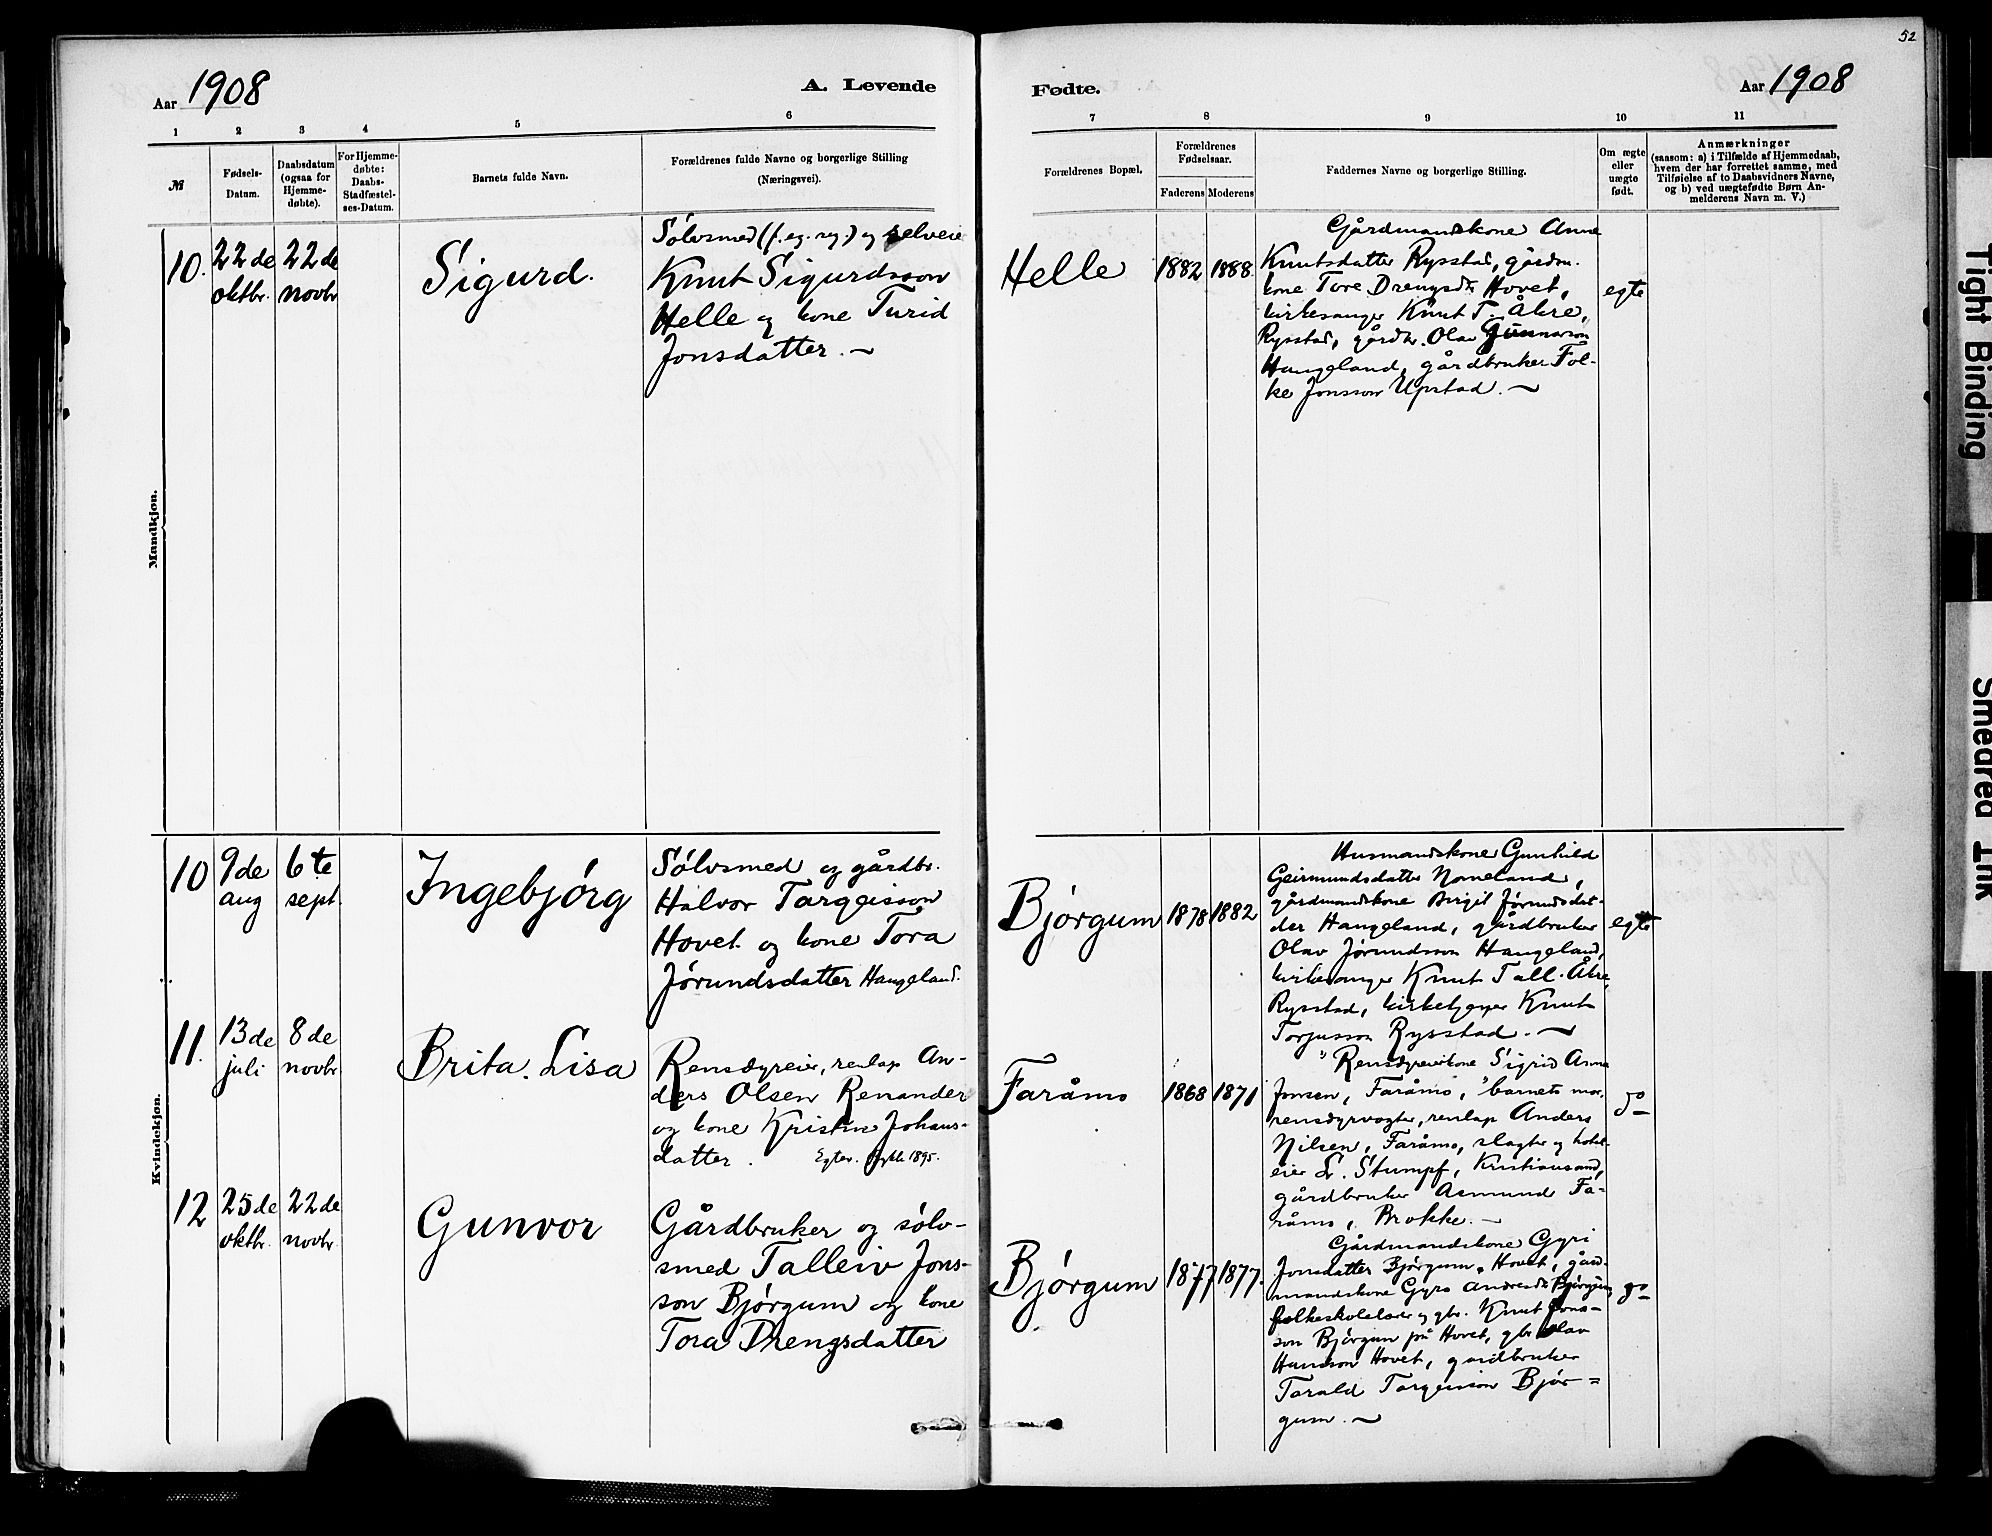 52
Aar 1908
A. Levende
Fødte.
Aar 1908
1 2 3 4 5 6 7 8 9 10 11
№
Fødsels-
Datum.
Daabsdatum
(ogsaa for
Hjemme-
døbte).
For Hjemme-
døbte:
Daabs-
Stadfæstel-
ses-Datum.
Barnets fulde Navn.
Forældrenes fulde Navne og borgerlige Stilling
(Næringsvei).
Forældrenes Bopæl.
Forældrenes
Fødselsaar.
Faderens Moderens
Faddernes Navne og borgerlige Stilling.
Om ægte
eller
uægte
født.
Anmærkninger
(saasom: a) i Tilfælde af Hjemmedaab,
hvem der har forrettet samme, med
Tilføielse af to Daabsvidners Navne,
og b) ved uægtefødte Børn An-
melderens Navn m. V.)
Mandkjøn.
10.
22de
oktbr.
22de
novbr
Sigurd.
Sølvsmed (f. eg. reg.) og selveie
Knut Sigurdsson
Helle og kone Turid
Jonsdatter. ~
Helle
1882
1888.
Gårdmandskone Anne
Knutsdatter Rysstad, gårdm.
kone Tore Drengsdtr Hovet,
kirkesanger Knut T. Åkre,
Rysstad, gårdbr. Olav Gunnarson
Haugeland, gårdbruker Fol-
ke Jonsson Upstad. ~
egte
Kvindekjøn.
10
9de
aug
6te
sept.
Ingebjørg
Sølvsmed og gårdbr.
Halvor Targeisson
Hovet og kone Tora
Jørundsdatter Haugeland.
Bjørgum
1878
1882
Husmandskone Gunhild
Geirmundsdatter Nomeland,
gårdmandskone Birgit Jørundsdat-
der Haugeland, gårdbruker
Olav Jørundsson Haugeland,
kirkesanger Knut Tall. Åkre,
Rysstad, kirketjener Knut
Torjusson Rysstad. ~
egte
11.
13de
juli
8de
novbr
Brita Lisa
Rensdyreier, renlap An-
ders Olsen Renander
og kone Kristine Johans-
datter. Egtev. 1895.
Faråmo
1868
1871
" Rensdyreierkone Sigrid Anna
Jonsen, Faråmo, " barnets mor,
rensdyrvogter, renlap Anders
Nilsen, Faråmo, slagter og hotel-
eier L. Stumpf, Kristiansand,
gårdbruker Asmund Få-
råmo, Brokke. ~
do
12
25de
oktbr.
22de
novbr
Gunvor
Gårdbruker og sølv-
smed Talleiv Jons-
son Bjørgum og kone
Tora Drengsdatter
Bjørgum
1877
1877.
Gårdmandskone Gyri
Jonsdatter Bjørgum, Hovet, gård-
mandskone Gyro Andresdtr Bjørgum
folkeskolelærer og gbr. Knut Jons-
son Bjørgum på Hovet, gbr Olav
Hovet, gardbruker
Tarald Targeisson Bjør-
gum. ~
do
Tight Binding
Smeared Ink